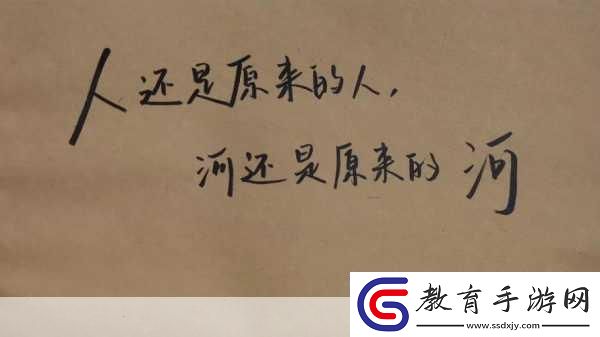 人还是原来的人，
河还是原来的河
教育手游网
www.ssdxjy.com